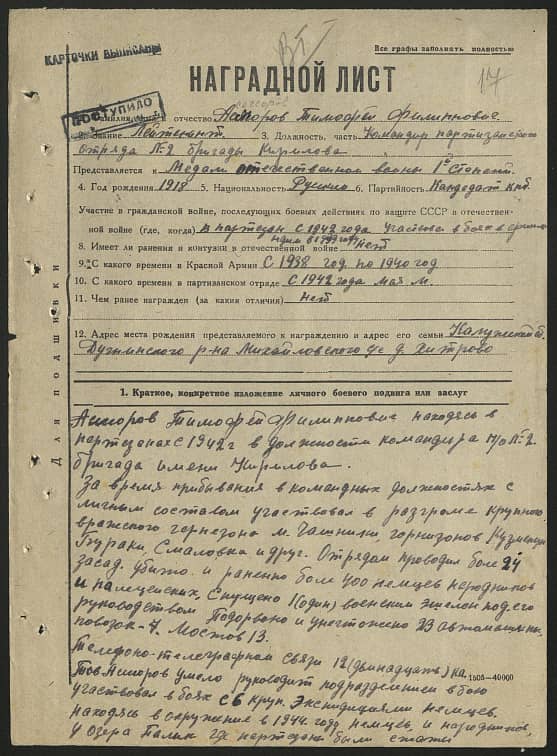 КАРТОЧКИ ВЫПИСАНЫ
Все графы заполнять полностью
17
НАГРАДНОЙ ЛИСТ
ПОСТУПИЛО
отчество Аспоров Тимофей Филиппович
2. Звание Лейтенант. 3. Должность, часть Командир партизанского
отряда №2 бригады Кирилова
Представляется к Медал отечественной войны 1ой Степени.
4. Год рождения 1918 5. Национальность Русский 6. Партийность Кандедат кпб.
Участие в гражданской войне, последующих боевых действиях по защите СССР и отечествен-
ной войне (где, когда) в партезан с 1942 года Участвовал в боях в
8. Имеет ли ранения и контузии в отечественной войне нет
9. С какого времени в Красной Армии С 1938 год по 1940 год
10. С какого времени в партизанском отряде С 1942 года май м.
11. Чем ранее награжден (за какия отличия) нет
12. Адрес места рождения представляемого к награждению и адрес его семьи
р-на Михайловского с/с д. Хитрово
Для подшивки
1. Краткое, конкретное изложение личного боевого подвига или заслуг
Аспоров Тимофей Филиппович находясь в
партезанах с 1942 г в должности командира п/о №2.
бригада имени Кирилова.
За время прибывания в командных должностях с
личным составом участвовал в разгроме крупного
вражеского гернезона м. Чашники, горнизонов
Бураки, Смаловка и друг. Отрядом проводил боле 24
засад. убижо и раненно боле 400 немцев
и палицейских, Спущено 1 (один) военский эшелон под его
руководством Подорвано и унечтожено 23 автомашины.
повозок-7. Мостов 13.
Телефоно-телеграфной связи 12 (двинадцать) км. 1505-40000
Тов. Аспоров умело руководит подразделением в бою
участвовал в боях с 6 круп. Экспидициями немцев.
находясь в окружение в 1944 году немцев и народников,
у озера Палик где партезаны были сжаты